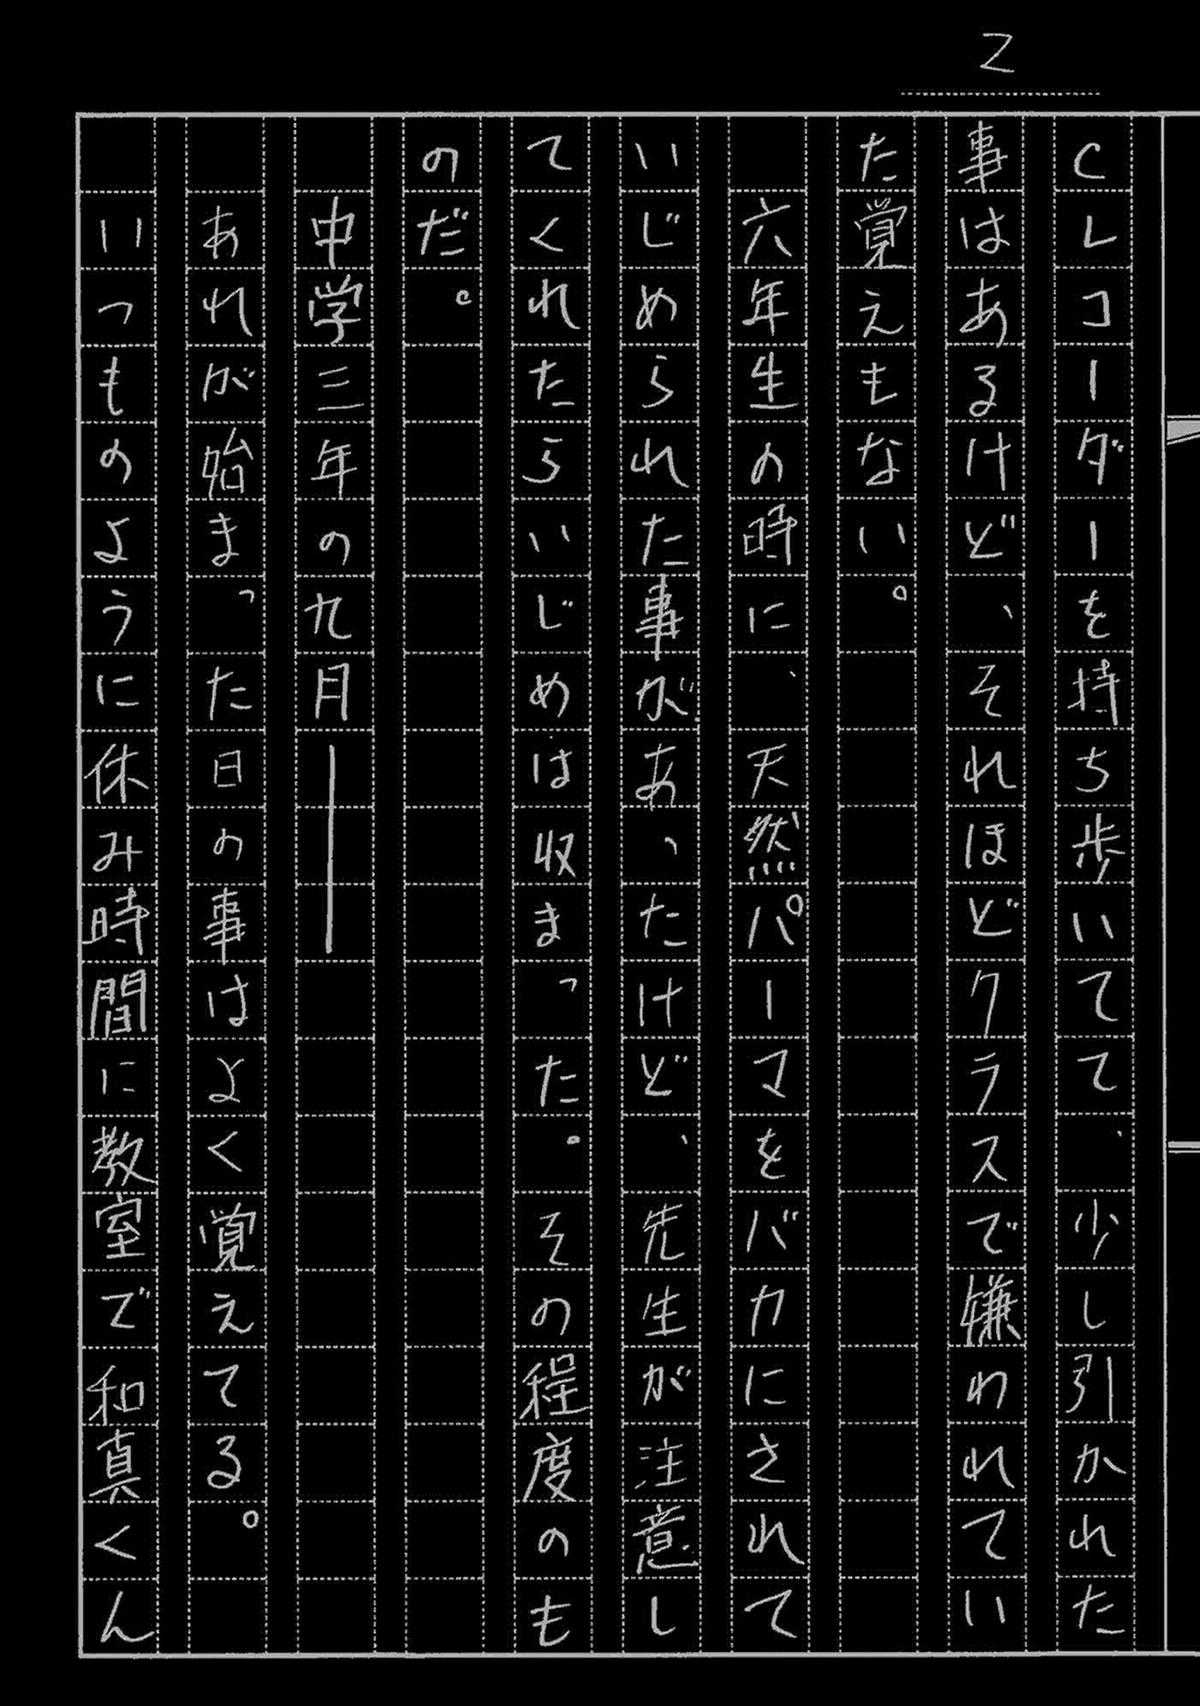 2
Cレコーダーを持ち歩いてて、少し引かれた
事はあるけど、それほどクラスで嫌われてい
た覚えもない。
六年生の時に、天然パーマをバカにされて
いじめられた事があったけど、先生が注意し
てくれたらいじめは収まった。その程度のも
のだ。
中学三年の九月―――
あれが始まった日の事はよく覚えてる。
いつものように休み時間に教室で和真くん